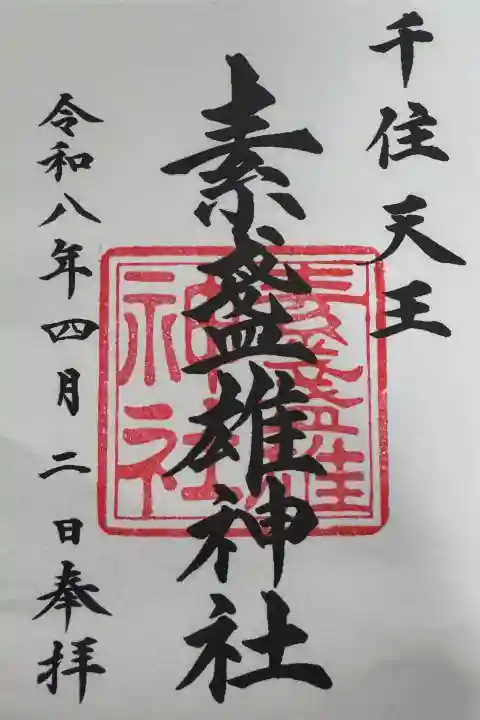 千住天王
素盞雄神社
素盞雄神社
令和八年四月二日奉拝